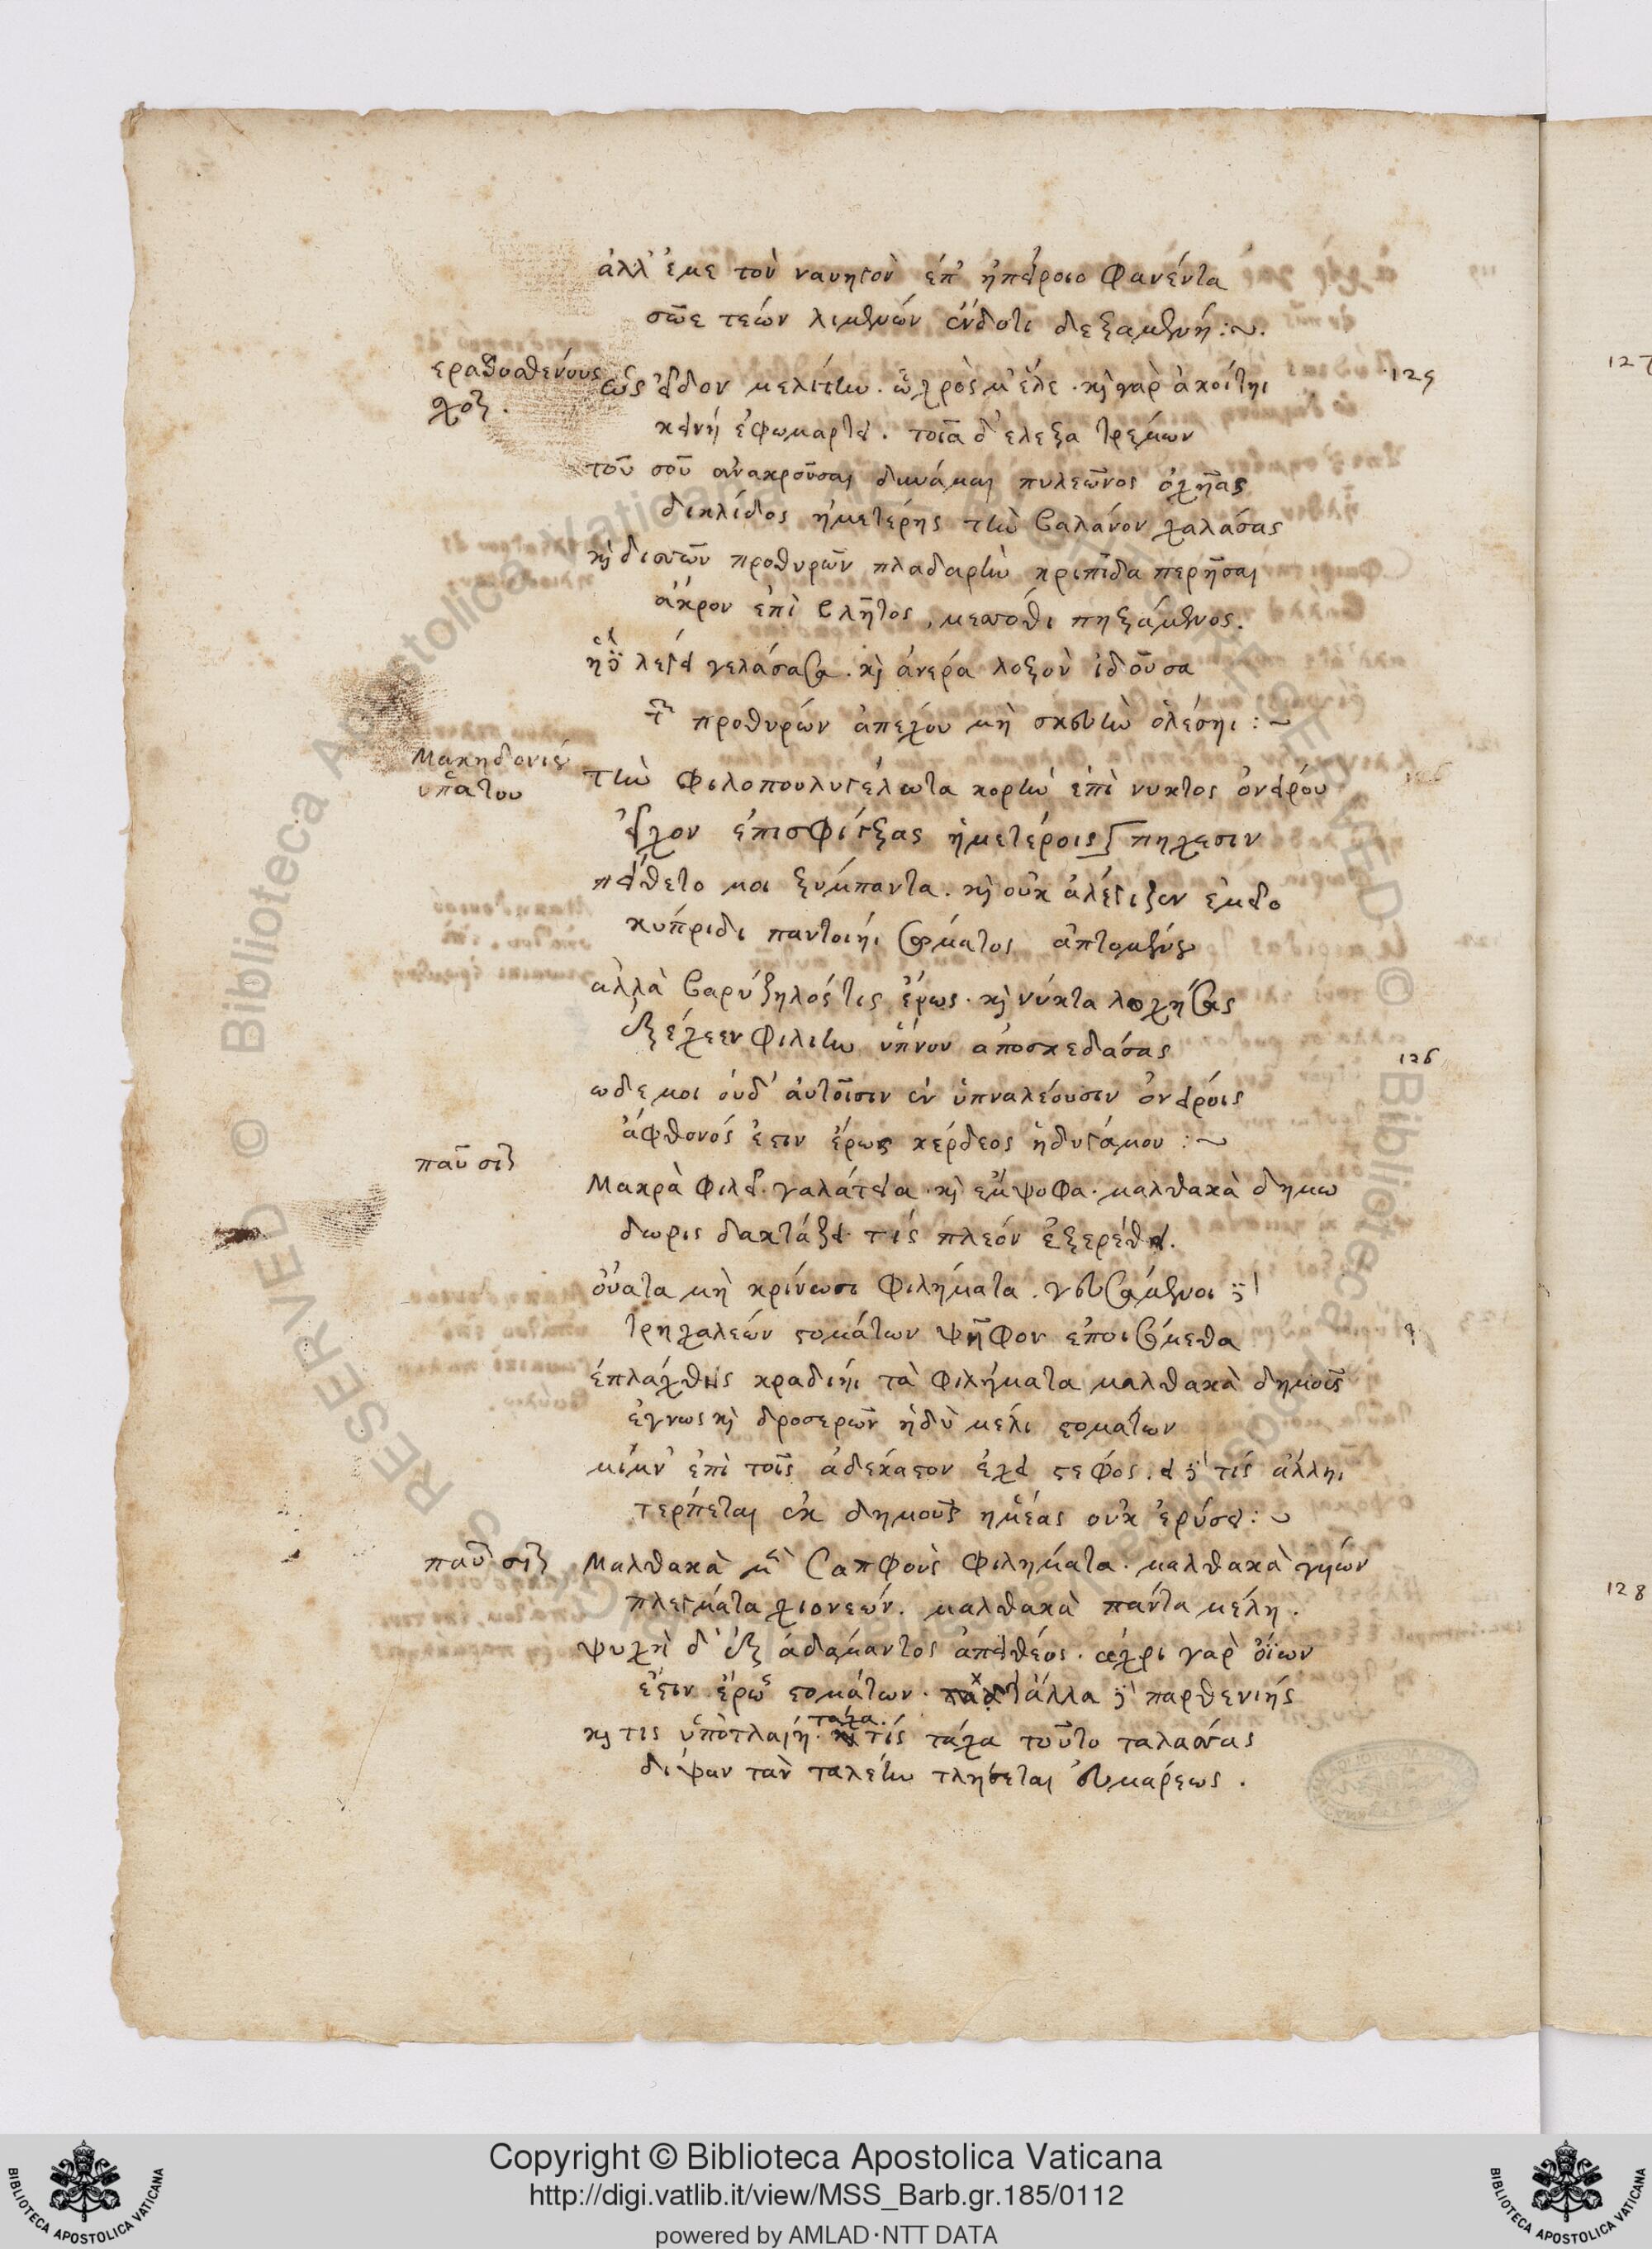 ἀλλ' ἐμὲ τὸν ναυηγὸν ἐπ' ἠπείροιο φανέντα
σῶε τεῶν λιμένων ἔνδοθι δεξαμένη :~
ἐρατοσθένους
σχολ.
ὡς εἶδον μελίτην. ὦχρος μ' ἕλε. καὶ γὰρ ἀκοίτηι
125
127
κείνη ἐφωμάρτει. τοῖα δ' ἔλεξα τρέμων
τοῦ σοῦ ἀνακροῦσαι δύναμαι πυλεῶνος ὀχῆας
δικλίδος ἡμετέρης τὴν βαλάνον χαλάσας
καὶ δισσῶν προθυρῶν πλαδαρὴν κριπῖδα περῆσαι
ἄκρον ἐπὶ βλῆτος, μεσσόθι πηξάμενος.
ἡ δὲ λέγει γελάσασα. καὶ ἀνέρα λοξὸν ἰδοῦσα
τῶν προθυρῶν ἀπέχου μή σκευὴν ὀλέσηι :~
Μακηδονίου
ὑπάτου
τὴν φιλοπουλυγέλωτα κορὴν ἐπὶ νυκτὸς ὀνείρου
εἶχον ἐπισφίγξας ἡμετέροις πήχεσιν
πείθετο μοι ξύμπαντα. καὶ οὐκ ἀλέγιζεν ἐμεῖο
κύπριδι παντοίηι σώματος ἁπτομένου
ἀλλὰ βαρύζηλός τις ἔρως. καὶ νύκτα λοχήσας
ἐξέχεεν φιλίην ὕπνον ἀποσκεδάσας
126
ὧδε μοι οὐδ' αὐτοῖσιν ἐν ὑπναλέουσιν ὀνείροις
ἄφθονός ἐστιν ἔρως κέρδεος ἡδυγάμου :~
παῦ σιλ
Μακρὰ φιλεῖ. γαλάτεια. καὶ ἔμψοφα. μαλθακὰ δημω
δωρις δακτάζει. τίς πλεόν ἐξερέθει.
οὔατα μὴ κρίνωσι φιλήματα. γευσάμενοι δὲ
τρηχαλεών στομάτων ψῆφον ἐποισόμεθα
ἐπλάχθης κραδίηι τὰ φιλήματα μαλθακὰ δημοῦς
ἔγνως καὶ δροσερῶν ἡδὺ μέλι στομάτων
μίμν' ἐπὶ τοῖς ἀδέκαστον ἔχει στέφος. εἰ δὲ τίς ἄλληι
τέρπεται ἐκ δημοῦς ἡμέας οὐκ ἐρύσει :~
παῦ σιλ
Μαλθακὰ μὲν Σαπφοὺς φιλήματα. μαλθακὰ γυίων
128
πλέγματα χιονέων. μαλθακὰ πάντα μέλη.
ψυχὴ δ' ἐξ ἀδάμαντος ἀπειθέος. ἄχρι γὰρ οἴων
ἔστιν ἔρως στομάτων. τἄλλα δὲ παρθενίης
καὶ τις ὑπότλαίη. τάχα. τίς τάχα τοῦτο ταλάσσας
δίψαν τὰν ταλέην τλήσεται εὐμαρέως.
Copyright © Biblioteca Apostolica Vaticana
http://digi.vatlib.it/view/MSS_Barb.gr.185/0112
powered by AMLAD·NTT DATA